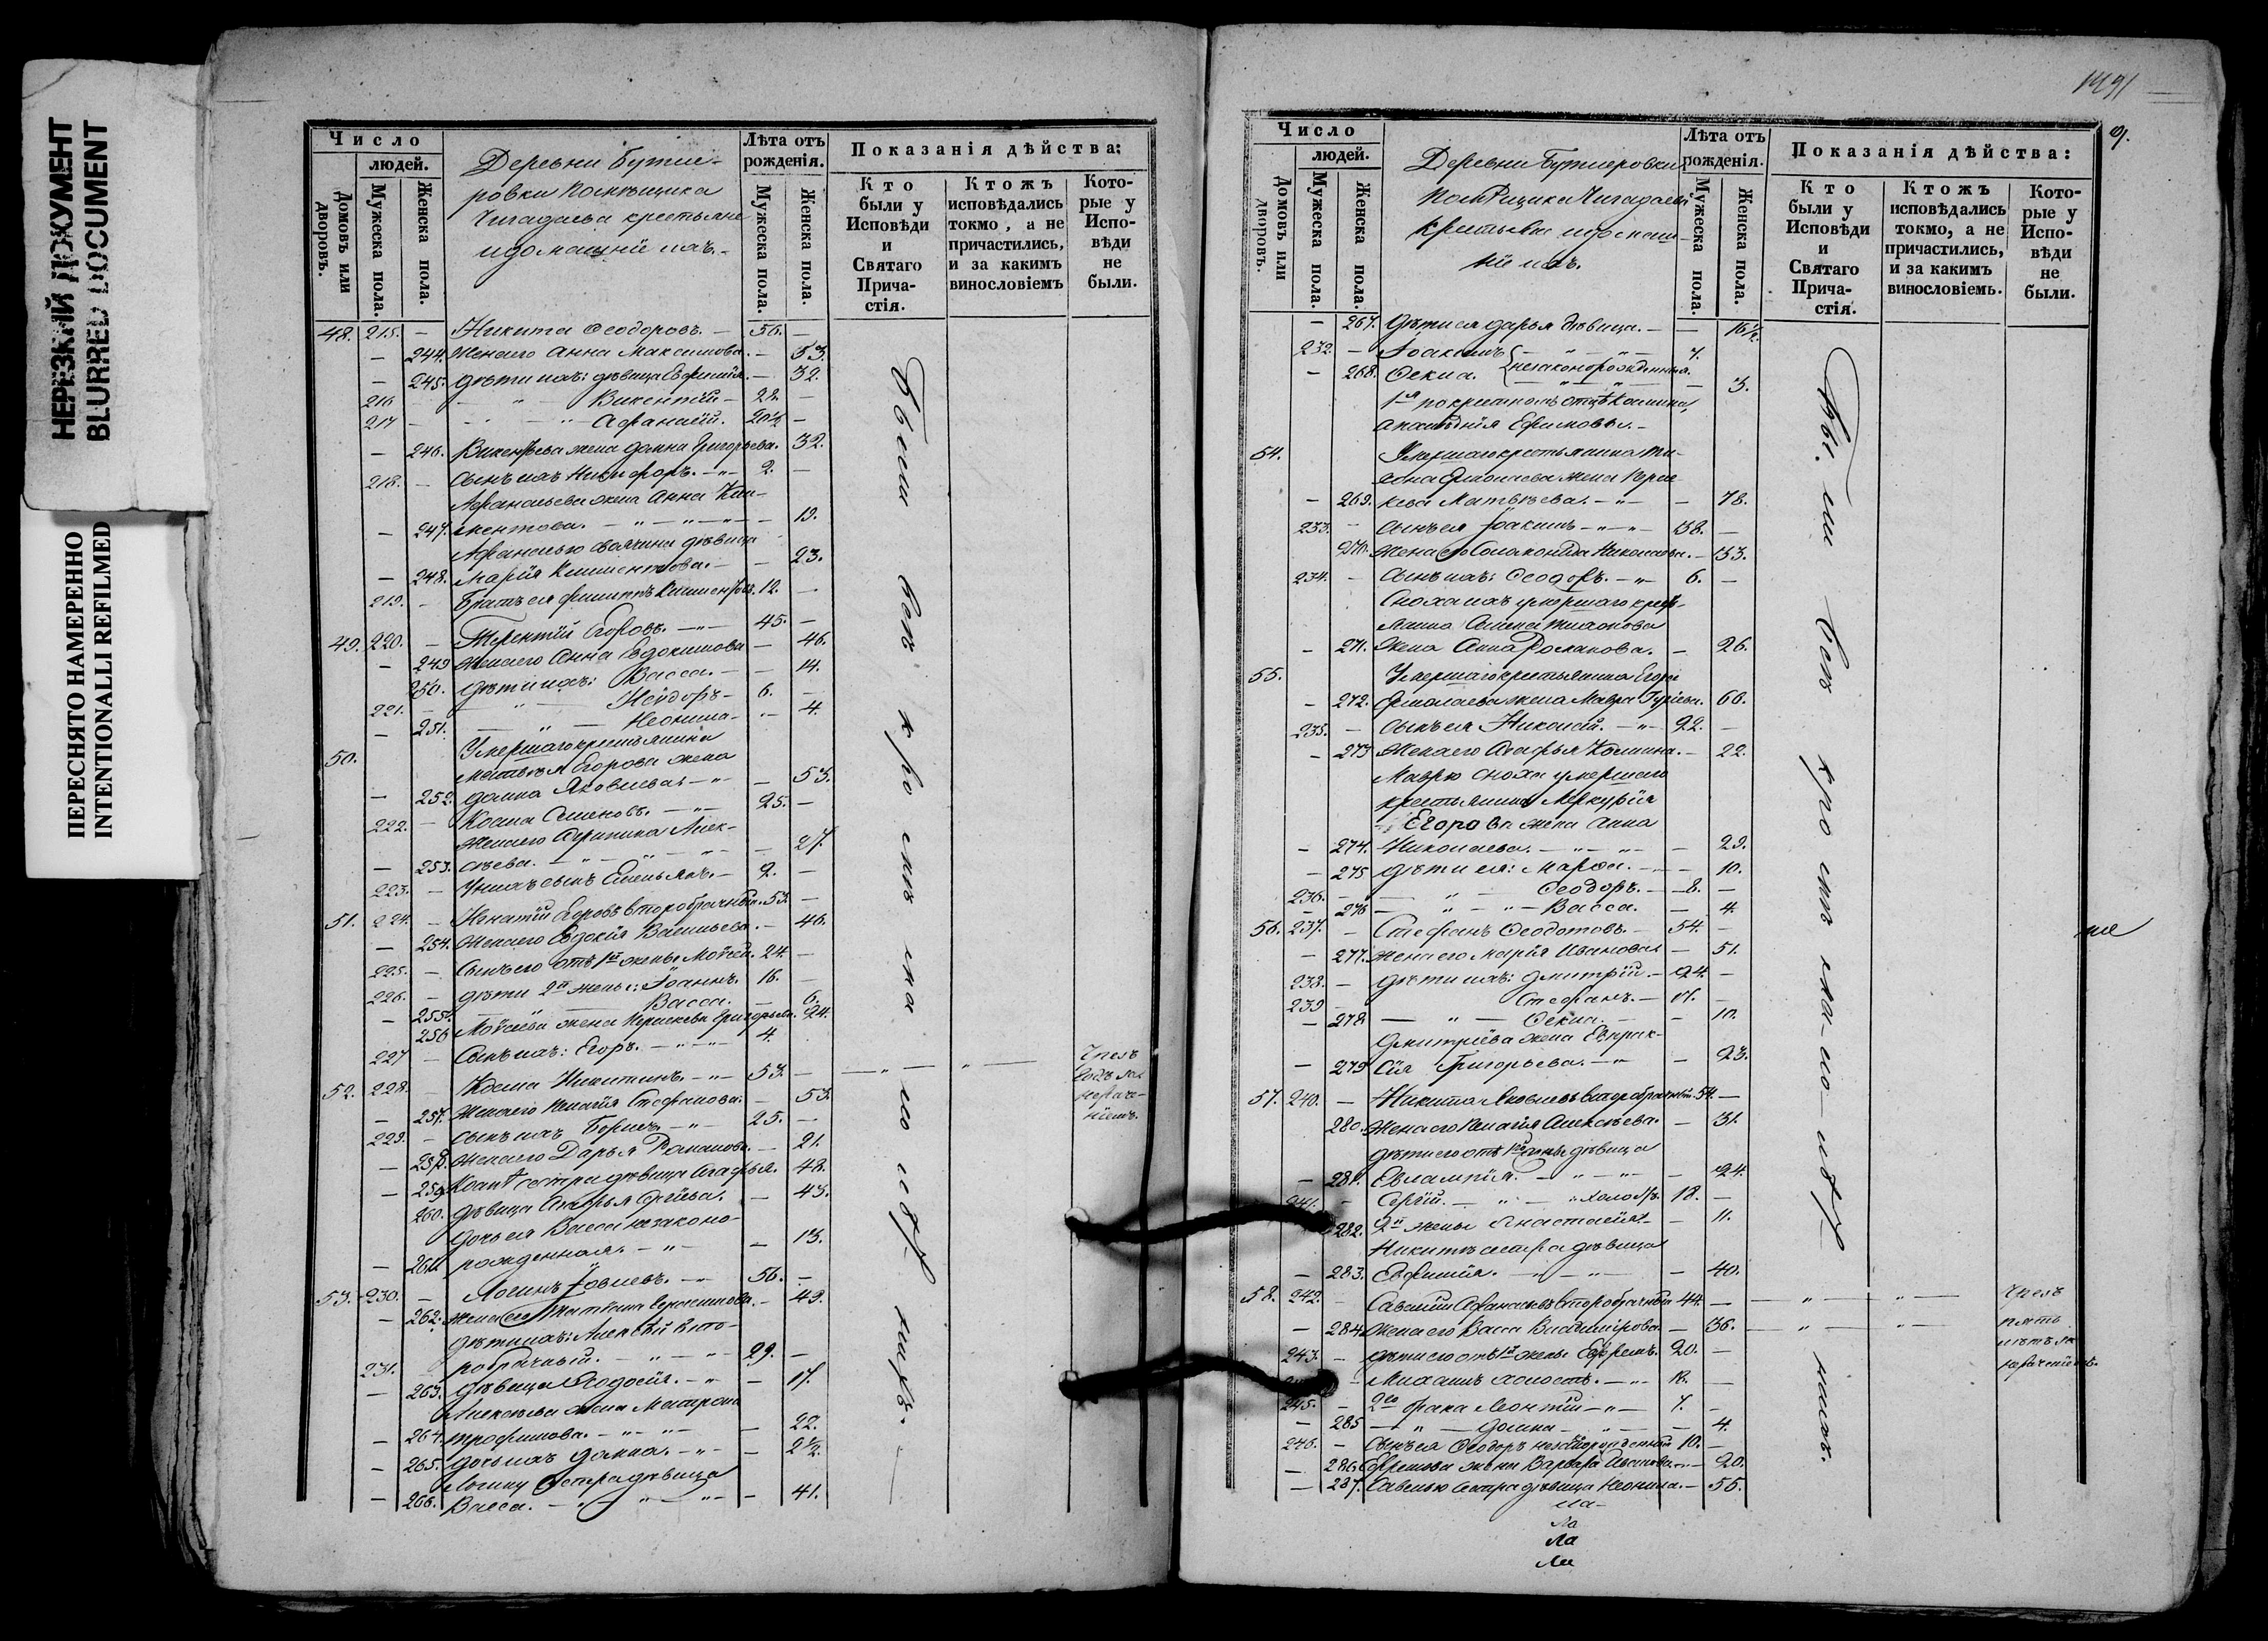 НЕРЕЗКИЙ ДОКУМЕНТ
BLURRED DOCUMENT
ПЕРЕСНЯТО НАМЕРЕННО
INTENTIONALLI REFILMED
Число
людей.
Домовъ или дворовъ.
Мужеска пола.
Женска пола.
Деревни Бутле-
ровки помѣщика
Чегадаева крестьяне
и домашніи ихъ.
Лѣта отъ рожденія.
Мужеска пола.
Женска пола.
Показанія дѣйства:
Кто были у Исповѣди и Святаго Прича-стія.
Ктожъ исповѣдались токмо, а не причастились, и за какимъ винословіемъ
Кото-рые у Испо-вѣди не были.
48. 215. — Никита Ѳеодоровъ. — 56. —
— 244. Жена его Анна Максимова. — 53.
— 245. дѣти ихъ: дѣвица Евфимія. — 32.
216 — " — Викентій — 22. —
217 — — " — Афанасій. 20½ —
— 246. Викентьева жена Домна Григорьева. 32.
218. — Сынъ ихъ Никифоръ. — " — 2. —
Афанасьева жена Анна Кли-
— 247. ментова. — " — " — " — 19.
Афанасью своячина дѣвица
— 248. Марія Климентова. — — 23.
219. — Братъ ея Филиппъ Климентовъ. 12. —
49. 220. — Терентій Егоровъ. — " — 45. —
— 249 Жена его Анна Евдокимова — 46.
250. дѣти ихъ: Васса. — — 14.
221. — " — 6. —
— 251. — " — Неонила — " — 4.
50. Умершаго крестьянина
Егорова жена
— 252. Домна Яковлева. — " — — 53.
222. — Козма Семеновъ. — " — 25. —
Жена его Агрипина Алек-
— 253. сѣева. — " — " — " — 27.
223. — У нихъ сынъ Емельянъ. — 2. —
51. 224. — Игнатій Егоровъ второбрачный. 53. —
— 254. Жена его Евдокія Васильева. — 46.
225. — Сынъ его отъ 1й жены Моѵсей. 24. —
226. — дѣти 2й жены: Іоаннъ. 16. —
— 255. — " — Васса. — 6.
256 Моѵсеева жена Григорьева. 24.
227 — Сынъ ихъ: Егоръ. — " — " — 4.
52. 228. — Козма Никитинъ. — " — 53. — — " — " —
— 257. Жена его Пелагія Стефанова. — 53.
229. — Сынъ ихъ Борисъ. — " — 25. —
— 258. Жена его Дарья Романова. — 21.
— 259 сестра дѣвица Агафья. 48.
260. дѣвица Агафья — 43.
дочь ея Васса незаконо-
— 261. рожденная. — " — — 13.
53. 230. — Логинъ Іовлевъ. — " — 56. —
— 262. Жена его Татьяна Герасимова. — 49.
дѣти ихъ: Алексѣй вто-
231. — робрачный. — " — " — 29. —
— 263. дѣвица Ѳеодосія. — " — 17.
Алексѣева жена Матрона
— 264. Трофимова. — " — " — — 22.
— 265. дочь ихъ Домна. — " — — 2½.
Логину сестра дѣвица
— 266. Васса. — " — " — " — — 41.
Были вси кромѣ
1491
9.
Число
людей.
Домовъ или дворовъ.
Мужеска пола.
Женска пола.
Деревни Бутлеровки
помѣщика Чегадаева
крестьяне и домаш-
ніи ихъ.
Лѣта отъ рожденія.
Мужеска пола.
Женска пола.
Показанія дѣйства:
Кто были у Исповѣди и Святаго Прича-стія.
Ктожъ исповѣдались токмо, а не причастились, и за какимъ винословіемъ.
Кото-рые у Испо-вѣди не были.
— 267. дѣти ея Дарья дѣвица. — — 16½
232. — Іоакимъ — " — " — 7.
— 268. Ѳекла. незаконорожденныя. — 3.
54. Умершаго крестьянина Ти-
— 269. Матвѣева. — " — — 78.
233. — Сынъ ея Іоакимъ — " — " — 38. —
270. Жена его Соломонида Николаева. — 33.
234. — Сынъ ихъ: Ѳеодоръ. — " — 6. —
Сноха ихъ умершаго крес-
— 271. Жена Анна Романова. — 26.
55. Умершаго крестьянина Егора
— 272. Ермолаева жена Мавра Гурьева. 66.
235. — Сынъ ея — " — 22. —
— 273 Жена его Агафья Козмина. — 22.
Мавры сноха умершаго
крестьянина Меркурія
Егорова жена Анна
— 274. Николаева. — " — " — — 29.
— 275 дѣти ея: Марфа. — — 10.
236. — — " — Ѳеодоръ. — 8. —
— 276 — " — " — Васса. — 4.
56. 237. — Стефанъ Ѳеодотовъ. — 54. —
— 277. Жена его Марія Иванова — 51.
238. — дѣти ихъ: Дмитрій. — 24. —
239 — Стефанъ. — 17. —
— 278 — " — Ѳекла. — — 10.
Дмитріева жена Евпрак-
— 279 сія Григорьева. — " — 23.
57. 240. — Никита Яковлевъ второбрачный. 54. —
280. Жена его Пелагія Алексѣева. — 31.
дѣти его отъ 1й жены дѣвица
— 281. Евлампія. — " — " — — 24.
241. — Сергій. — " — " холостъ. 18. —
282. 2й жены Анастасія. — 11.
Никитѣ сестра дѣвица
— 283. Евфимія. — " — " — — 40.
58. 242. — Савелій Афанасьевъ второбрачный 44. — — " — " — Чрезъ
— 284. Жена его Васса Владимірова. — 36. — " — " — пять
243. — дѣти его отъ 1й жены Ефремъ. 20. — лѣтъ
— Михаилъ холостъ. — " — 18. —
245. — 2го брака Леонтій — " — 7. —
— 285 — " — Домна — " — — 4.
246. — Сынъ ея Ѳеодоръ незаконорожденный 10. —
— 286. Ефремова жена Варвара Иванова. — " — 20.
— 287. Савелью сестра дѣвица Неонила. — 55.
ла-
ла
ла
Бы. ли вси кромѣ